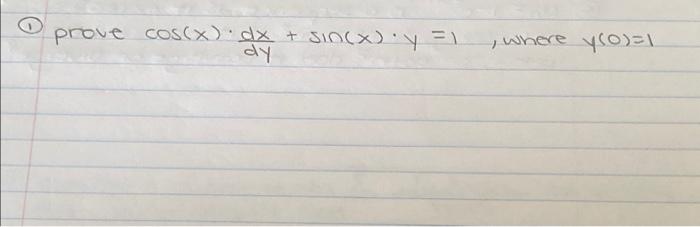 ① prove cos(x) · dx/dy + sin(x) · y = 1 , where y(0)=1